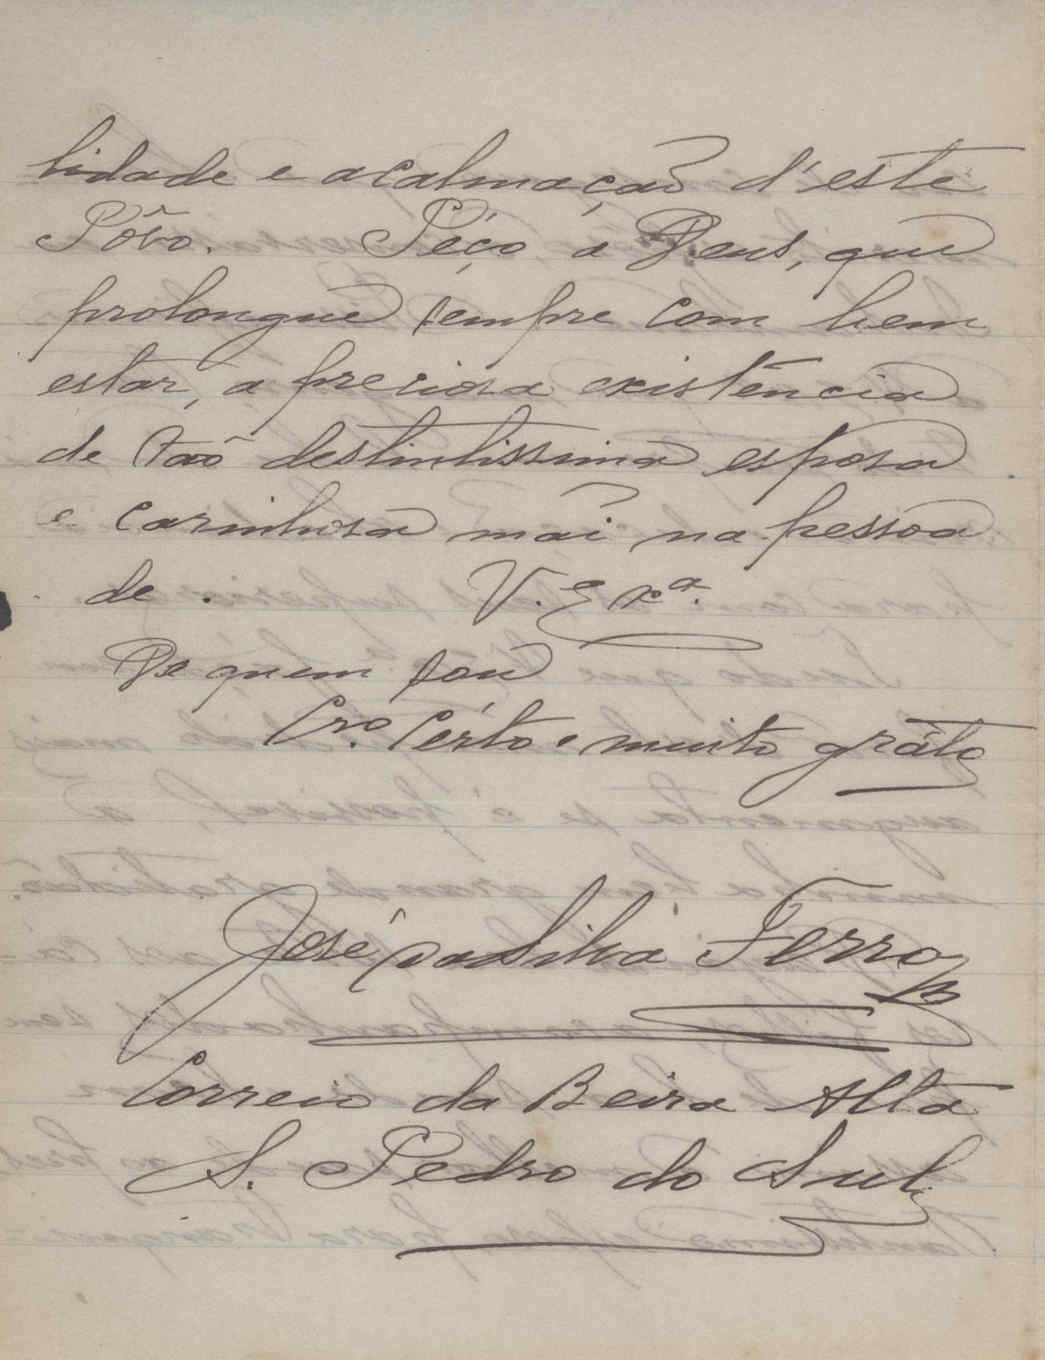 lidade e acalmação d'este
Pôvo. Péço a Deus, que
prolongue sempre com bem
estar, a preciosa existência
de taõ destintissima esposa
e carinhosa mãi na pessoa
de V. Exª.
De quem sou
Cro. Cérto e muito gráto
José da Silva Ferro
Correio da Beira Alta
S. Pedro do Sul